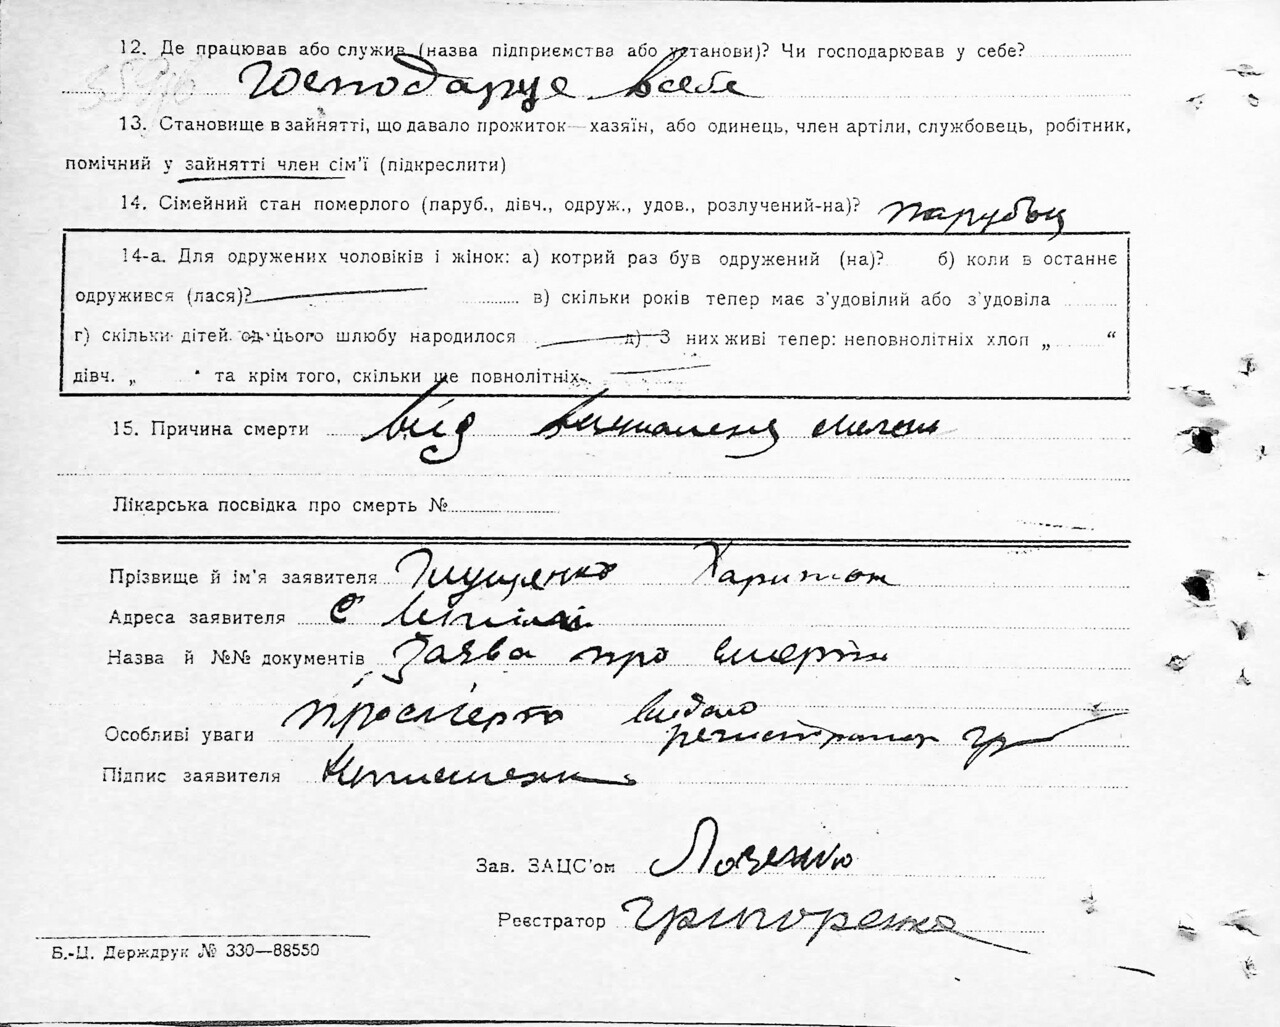 12. Де працював або служив (назва підприємства або установи)? Чи господарював у себе?
Господарує в себе
13. Становище в зайнятті, що давало прожиток—хазяїн, або одинець, член артіли, службовець, робітник,
помічний у зайнятті член сім'ї (підкреслити)
14. Сімейний стан померлого (паруб., дівч., одруж., удов., розлучений-на)? парубок
14-а. Для одружених чоловіків і жінок: а) котрий раз був одружений (на)? б) коли в останнє
одружився (лася)? в) скільки років тепер має з'удовілий або з'удовіла
г) скільки дітей од цього шлюбу народилося д) З них живі тепер: неповнолітніх хлоп „ “
дівч. „ “ та крім того, скільки ще повнолітніх
15. Причина смерти від
Лікарська посвідка про смерть №
Прізвище й ім'я заявителя Харитон
Адреса заявителя с
Назва й №№ документів Заява про смерть
видано
Особливі уваги
Підпис заявителя
Зав. ЗАЦС'ом
Реєстратор Григоренко
Б.-Ц. Держдрук № 330—88550